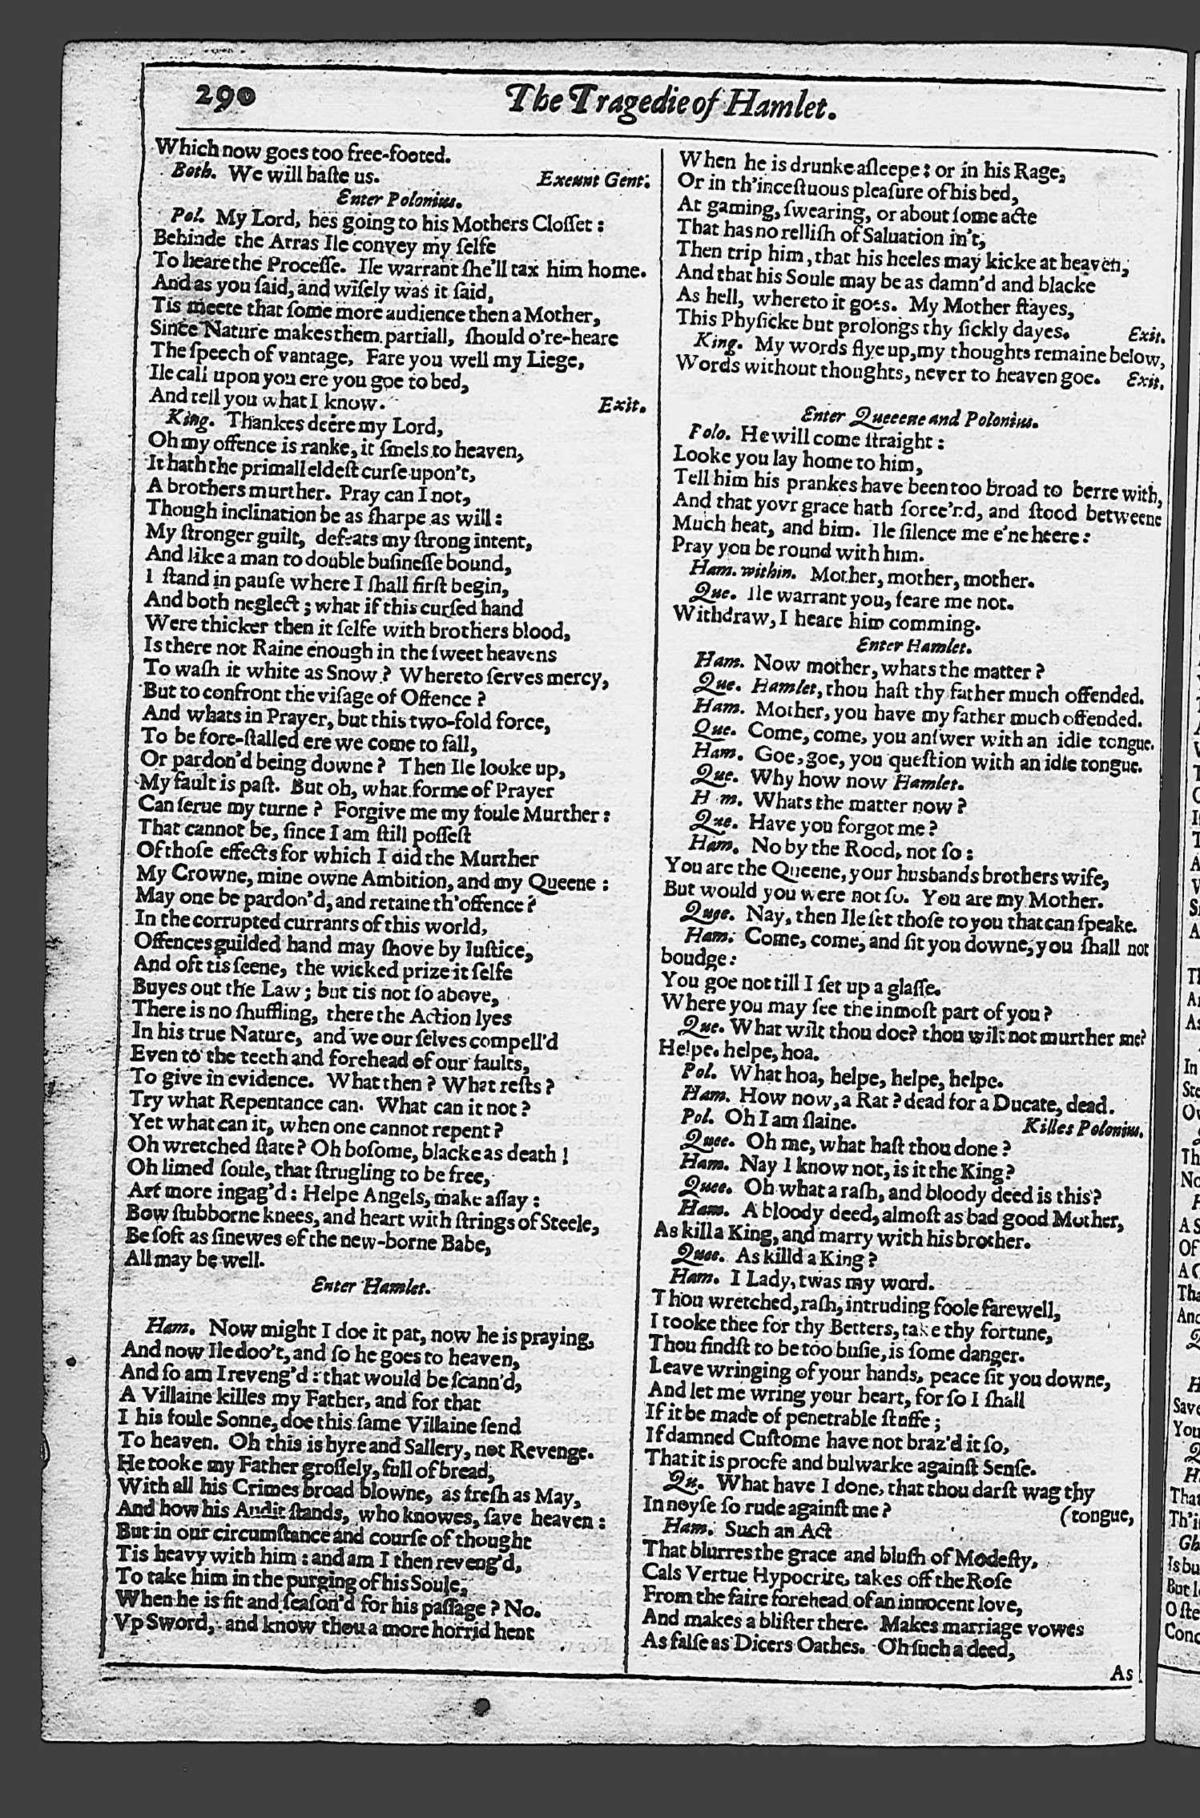 290
The Tragedie of Hamlet.
Which now goes too free-footed.
Both. We will haſte us. Exeunt Gent:
Enter Polonius.
Pol. My Lord, hes going to his Mothers Cloſſet:
Behinde the Arras Ile convey my ſelfe
To heare the Proceſſe. Ile warrant ſhe'll tax him home.
And as you ſaid, and wiſely was it ſaid,
Tis meete that ſome more audience then a Mother,
Since Nature makes them partiall, ſhould o're-heare
The ſpeech of vantage. Fare you well my Liege,
Ile call upon you ere you goe to bed,
And tell you what I know. Exit.
King. Thankes deere my Lord,
Oh my offence is ranke, it ſmels to heaven,
It hath the primall eldeſt curſe upon't,
A brothers murther. Pray can I not,
Though inclination be as ſharpe as will:
My ſtronger guilt, defeats my ſtrong intent,
And like a man to double buſineſſe bound,
I ſtand in pauſe where I ſhall firſt begin,
And both neglect; what if this curſed hand
Were thicker then it ſelfe with brothers blood,
Is there not Raine enough in the ſweet heavens
To waſh it white as Snow? Whereto ſerves mercy,
But to confront the viſage of Offence?
And whats in Prayer, but this two-fold force,
To be fore-ſtalled ere we come to fall,
Or pardon'd being downe? Then Ile looke up,
My fault is paſt. But oh, what forme of Prayer
Can ſerue my turne? Forgive me my foule Murther:
That cannot be, ſince I am ſtill poſſeſt
Of thoſe effects for which I did the Murther
My Crowne, mine owne Ambition, and my Queene:
May one be pardon'd, and retaine th'offence?
In the corrupted currants of this world,
Offences guilded hand may ſhove by Iuſtice,
And oft tis ſeene, the wicked prize it ſelfe
Buyes out the Law; but tis not ſo above,
There is no ſhuffling, there the Action lyes
In his true Nature, and we our ſelves compell'd
Even to the teeth and forehead of our faults,
To give in evidence. What then? What reſts?
Try what Repentance can. What can it not?
Yet what can it, when one cannot repent?
Oh wretched ſtate? Oh boſome, blacke as death!
Oh limed ſoule, that ſtrugling to be free,
Art more ingag'd: Helpe Angels, make aſſay:
Bow ſtubborne knees, and heart with ſtrings of Steele,
Be ſoft as ſinewes of the new-borne Babe,
All may be well.
Enter Hamlet.
Ham. Now might I doe it pat, now he is praying,
And now Ile doo't, and ſo he goes to heaven,
And ſo am I reveng'd: that would be ſcann'd,
A Villaine killes my Father, and for that
I his foule Sonne, doe this ſame Villaine ſend
To heaven. Oh this is hyre and Sallery, not Revenge.
He tooke my Father groſſely, full of bread,
With all his Crimes broad blowne, as freſh as May,
And how his Audit ſtands, who knowes, ſave heaven:
But in our circumſtance and courſe of thought
Tis heavy with him: and am I then reveng'd,
To take him in the purging of his Soule,
When he is fit and ſeaſon'd for his paſſage? No.
Vp Sword, and know thou a more horrid hent
When he is drunke aſleepe: or in his Rage,
Or in th'inceſtuous pleaſure of his bed,
At gaming, ſwearing, or about ſome acte
That has no relliſh of Saluation in't,
Then trip him, that his heeles may kicke at heaven,
And that his Soule may be as damn'd and blacke
As hell, whereto it goes. My Mother ſtayes,
This Phyſicke but prolongs thy ſickly dayes. Exit.
King. My words flye up, my thoughts remaine below,
Words without thoughts, never to heaven goe. Exit.
Enter Queeene and Polonius.
Polo. He will come ſtraight:
Looke you lay home to him,
Tell him his prankes have been too broad to berre with,
And that yovr grace hath ſorce'nd, and ſtood betweene
Much heat, and him. Ile ſilence me e'ne heere:
Pray you be round with him.
Ham. within. Mother, mother, mother.
Que. Ile warrant you, feare me not.
Withdraw, I heare him comming.
Enter Hamlet.
Ham. Now mother, whats the matter?
Que. Hamlet, thou haſt thy father much offended.
Ham. Mother, you have my father much offended.
Que. Come, come, you anſwer with an idle tongue.
Ham. Goe, goe, you queſtion with an idle tongue.
Que. Why how now Hamlet.
H m. Whats the matter now?
Que. Have you forgot me?
Ham. No by the Rood, not ſo:
You are the Queene, your husbands brothers wife,
But would you were not ſo. You are my Mother.
Quee. Nay, then Ile ſet thoſe to you that can ſpeake.
Ham. Come, come, and ſit you downe, you ſhall not
boudge:
You goe not till I ſet up a glaſſe.
Where you may ſee the inmoſt part of you?
Que. What wilt thou doe? thou wilt not murther me?
Helpe. helpe, hoa.
Pol. What hoa, helpe, helpe, helpe.
Ham. How now, a Rat? dead for a Ducate, dead.
Pol. Oh I am ſlaine. Killes Polonius.
Quee. Oh me, what haſt thou done?
Ham. Nay I know not, is it the King?
Quee. Oh what a raſh, and bloody deed is this?
Ham. A bloody deed, almoſt as bad good Mother,
As kill a King, and marry with his brother.
Quee. As killd a King?
Ham. I Lady, twas my word.
Thou wretched, raſh, intruding foole farewell,
I tooke thee for thy Betters, take thy fortune,
Thou findſt to be too buſie, is ſome danger.
Leave wringing of your hands, peace ſit you downe,
And let me wring your heart, for ſo I ſhall
If it be made of penetrable ſtuffe;
If damned Cuſtome have not braz'd it ſo,
That it is proofe and bulwarke againſt Senſe.
Qu. What have I done, that thou darſt wag thy
In noyſe ſo rude againſt me? (tongue,
Ham. Such an Act
That blurres the grace and bluſh of Modeſty,
Cals Vertue Hypocrite, takes off the Roſe
From the faire forehead of an innocent love,
And makes a bliſter there. Makes marriage vowes
As falſe as Dicers Oathes. Oh ſuch a deed,
As